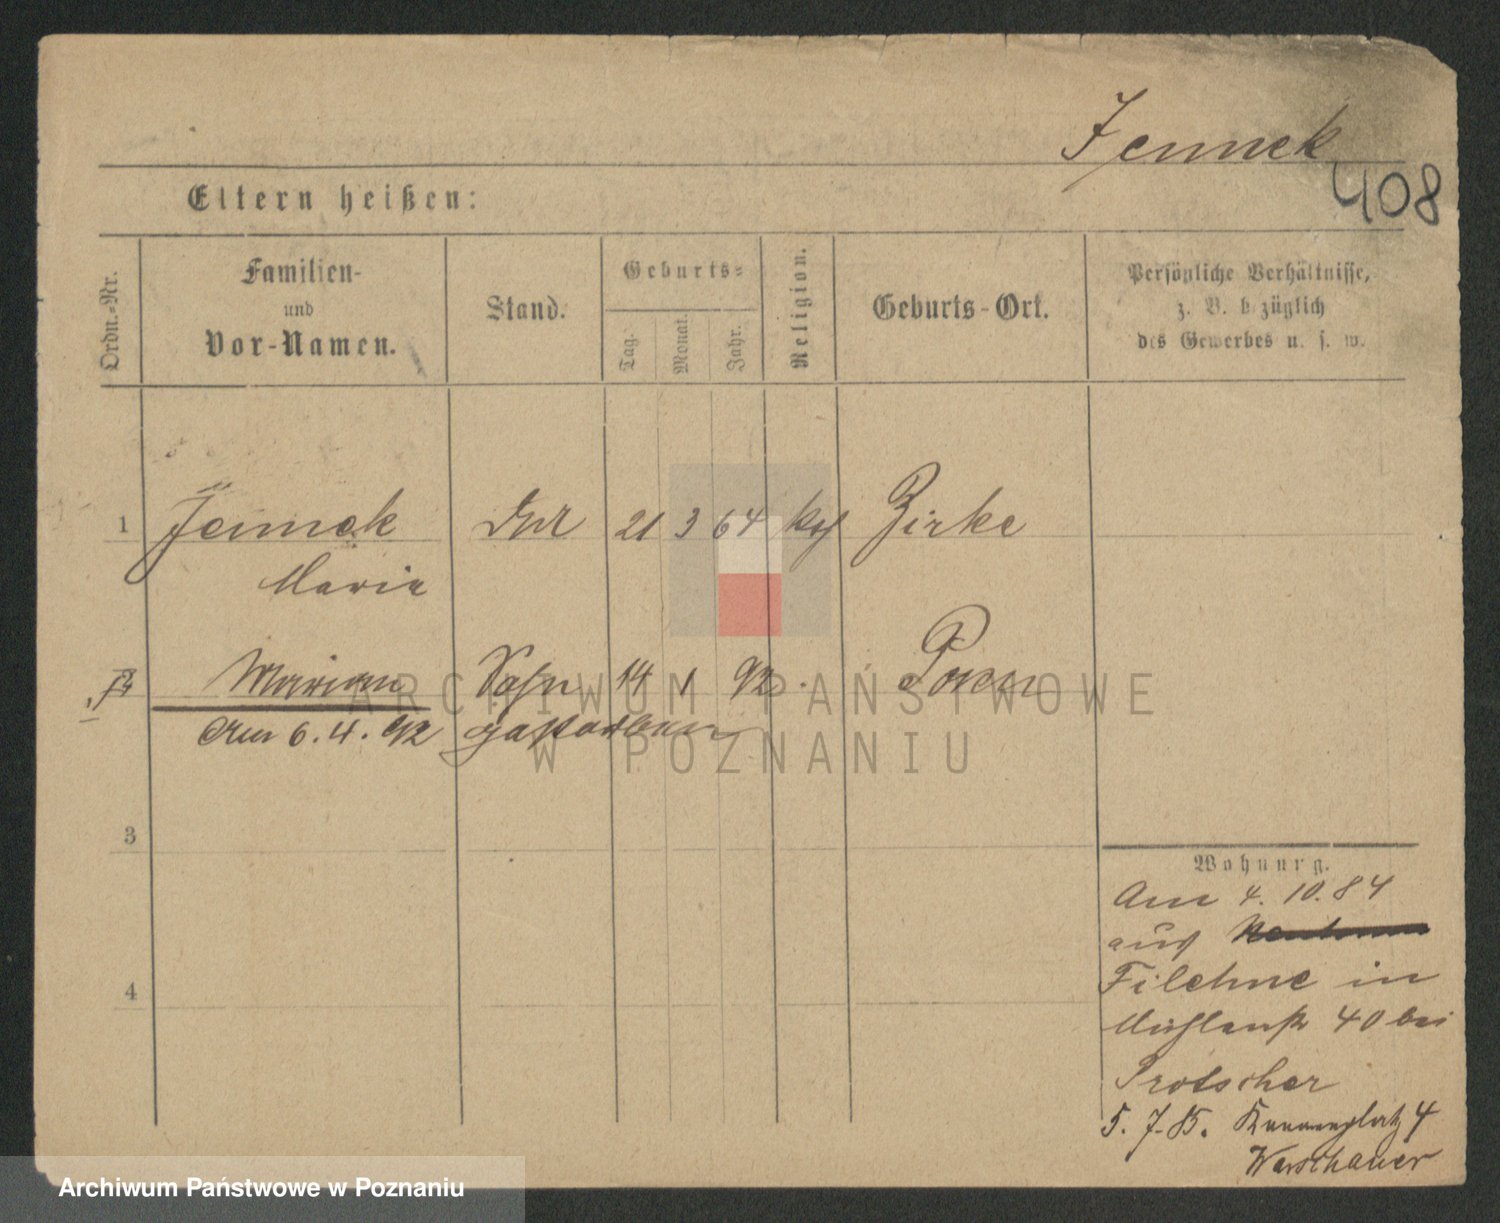 Jennek
408
Eltern heißen:
Ordn.-Nr.
Familien-
und
Vor-Namen.
Stand.
Geburts-
Tag.
Monat.
Jahr.
Religion.
Geburts-Ort.
Persönliche Verhältnisse,
z. B. bezüglich
des Gewerbes u. s. w.
1 Jennek 21 3 64 kth Zirke
Maria
2 Marian Sohn 14 1 92. Posen
Am 6. 4. 92 gestorben
3
4
Wohnung.
Am 4. 10. 84
aus
Filehne in
Mühlenstr 40 bei
Protscher
5. 7. 85. 4
Warschauer
ARCHIWUM PAŃSTWOWE
W POZNANIU
Archiwum Państwowe w Poznaniu